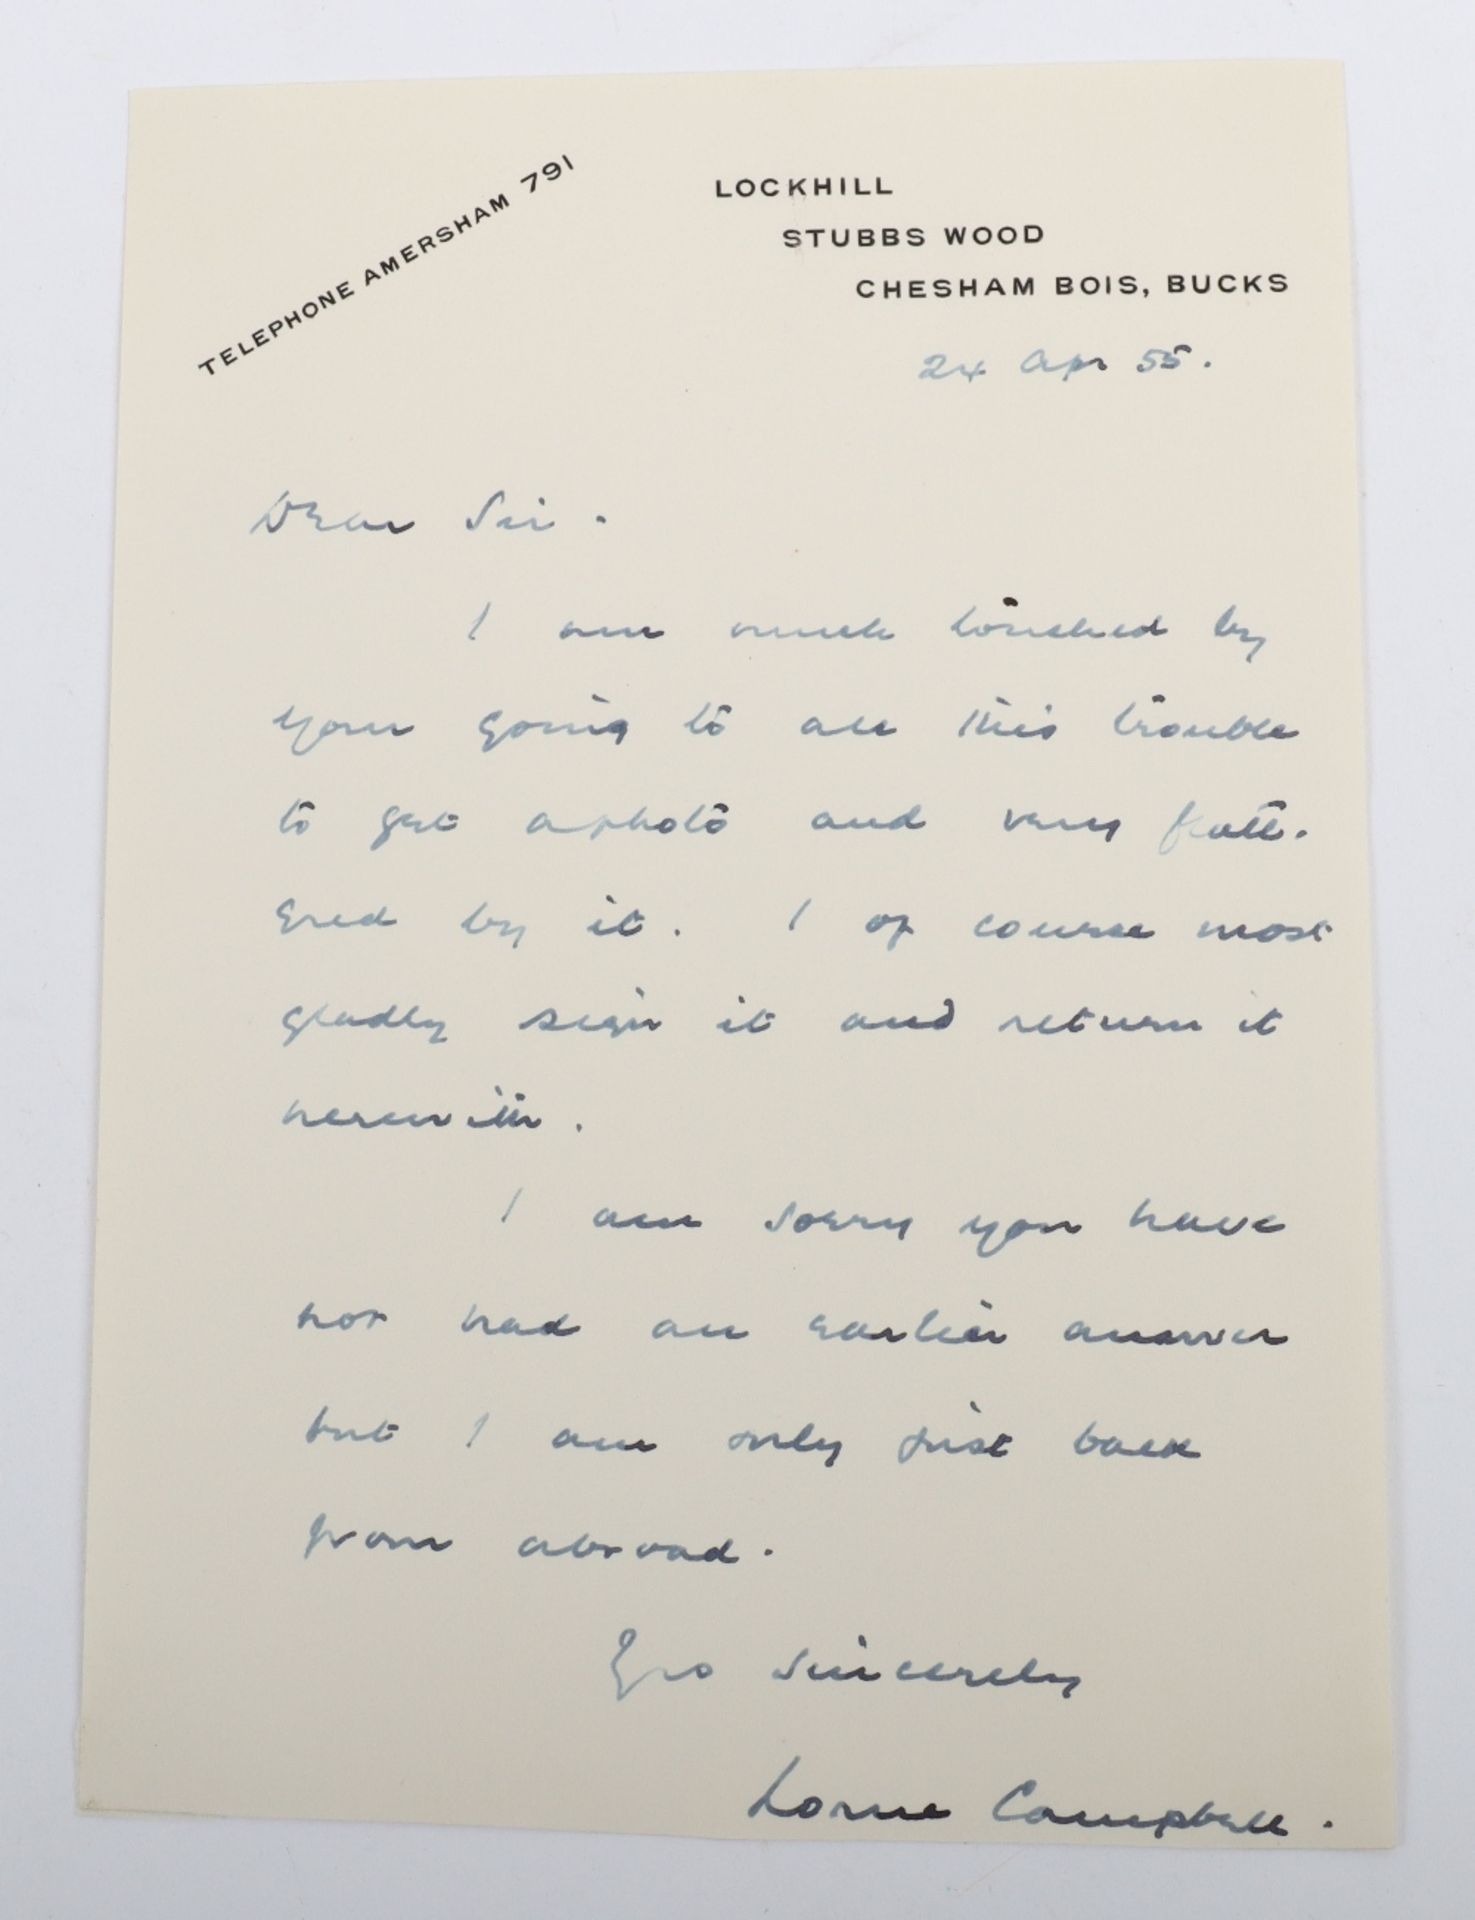 TELEPHONE AMERSHAM 791
LOCKHILL
STUBBS WOOD
CHESHAM BOIS, BUCKS
24 Apr 55.
Dear Sir.
I am much touched by
your going to all this trouble
to get a photo and very flatt-
ered by it. I of course most
gladly sign it and return it
herewith.
I am sorry you have
not had an earlier answer
but I am only just back
from abroad.
Yrs sincerely
Lorne Campbell.